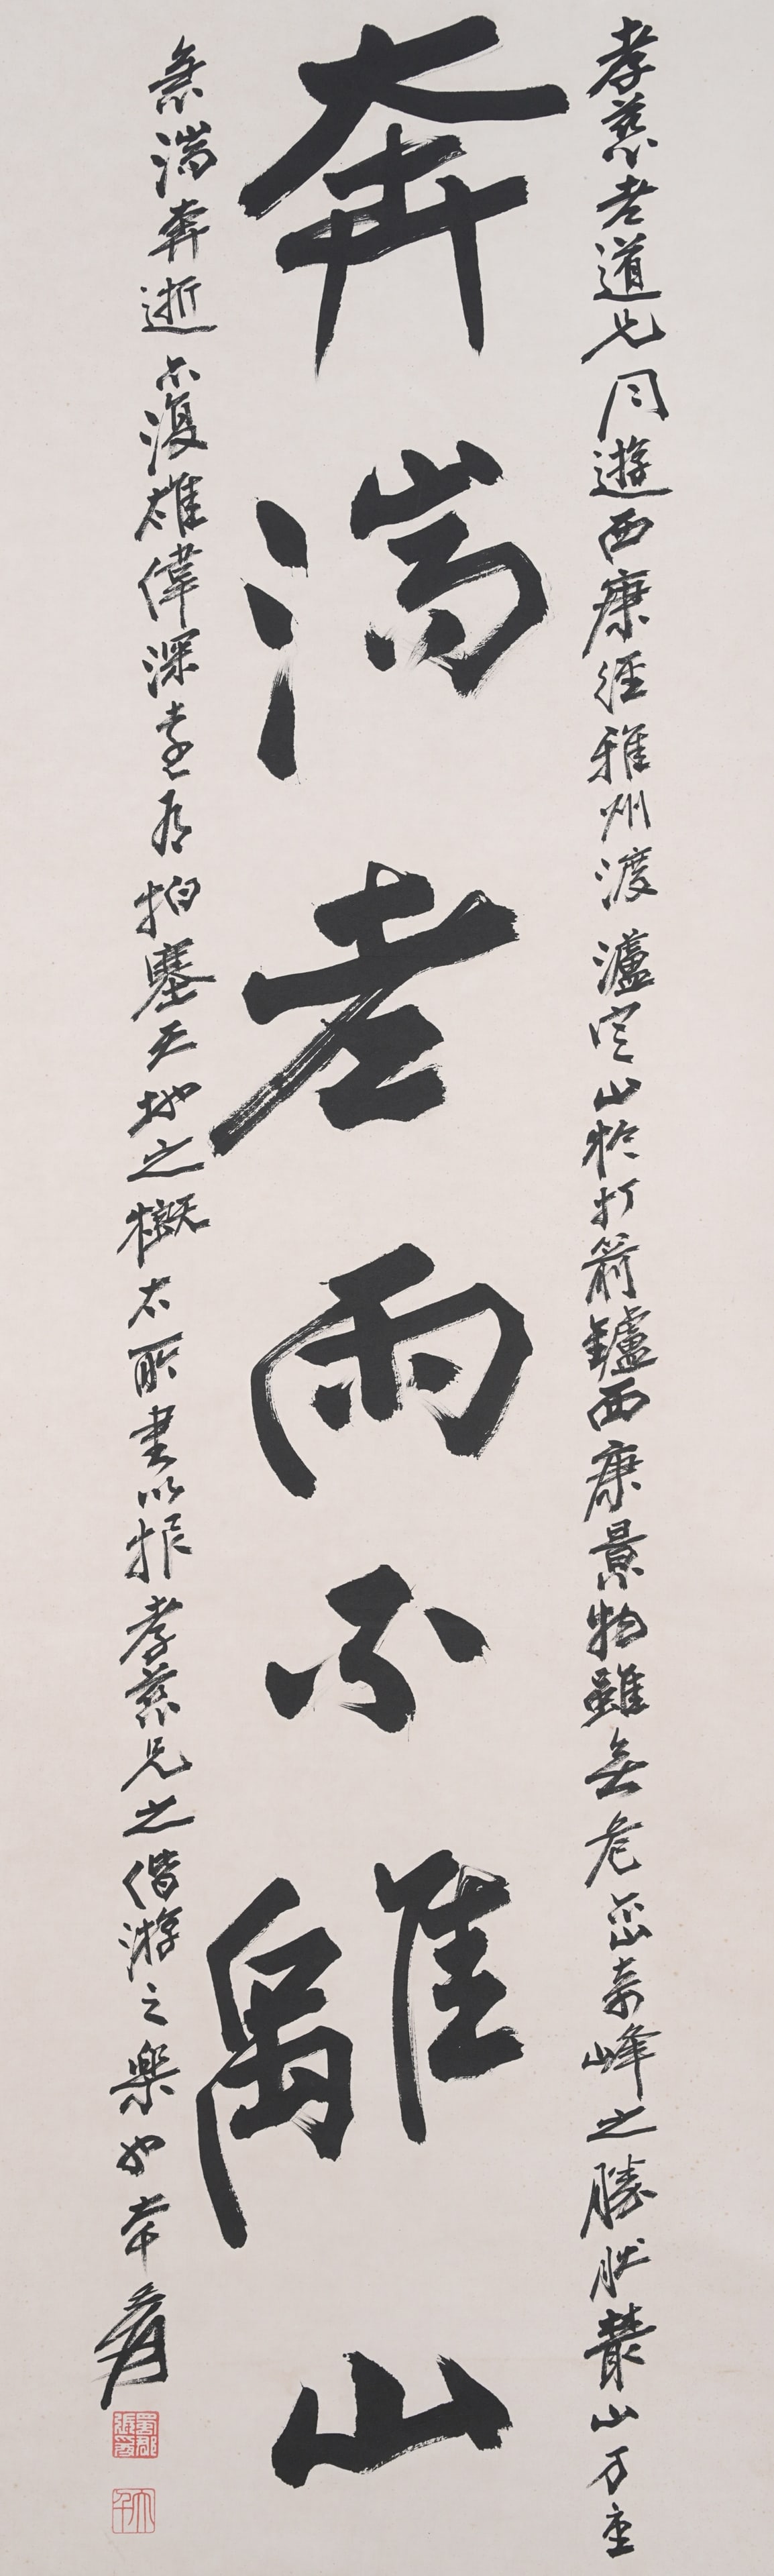 孝慈老道兄同遊西康經雅州渡瀘定止於打箭鑪西康景物雖無危巒奇峰之勝然叢山万重
奔湍老雨不離山
急湍奔逝亦復雄偉深遠有拍塞天地之概右書以报孝慈兄之偕游之樂也弟爰
蜀郡張爰
大千